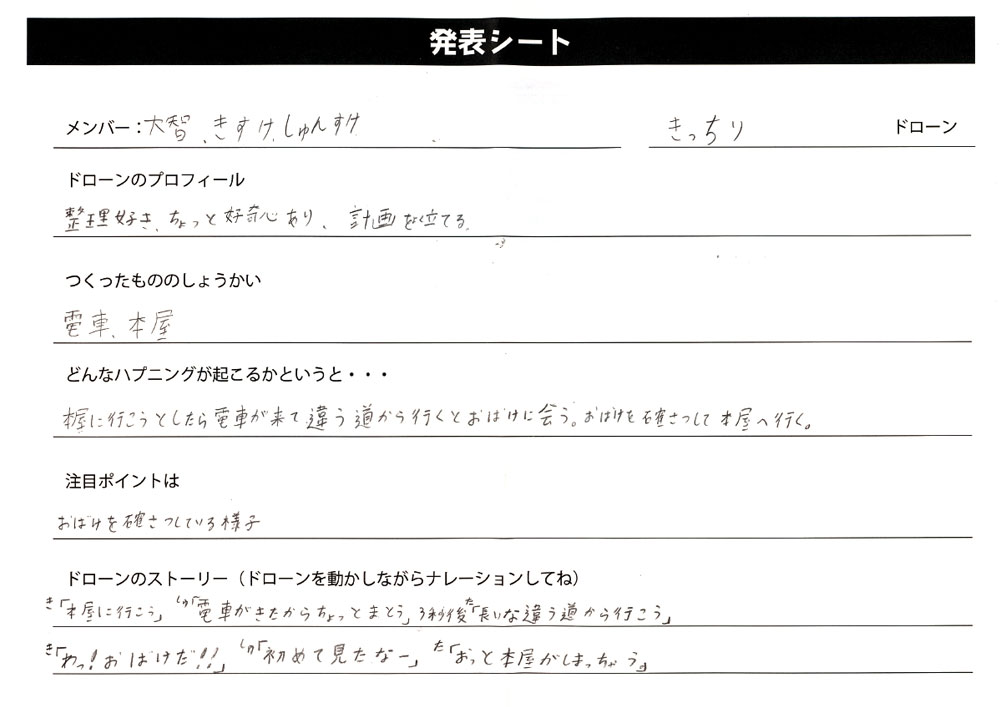 発表シート
メンバー：大智、きすけ、しゅんすけ
きっちり ドローン
ドローンのプロフィール
整理好き、ちょっと好奇心あり、計画を立てる。
つくったもののしょうかい
電車、本屋
どんなハプニングが起こるかというと・・・
本屋に行こうとしたら電車が来て違う道から行くとおばけに会う。おばけを確さつして本屋へ行く。
注目ポイントは
おばけを確さつしている様子
ドローンのストーリー（ドローンを動かしながらナレーションしてね）
き「本屋に行こう」し「電車がきたからちょっとまとう」3秒後 た「長いな違う道から行こう」
き「わっ！おばけだ!!」し「初めて見たなー」た「おっと本屋がしまっちゃう」